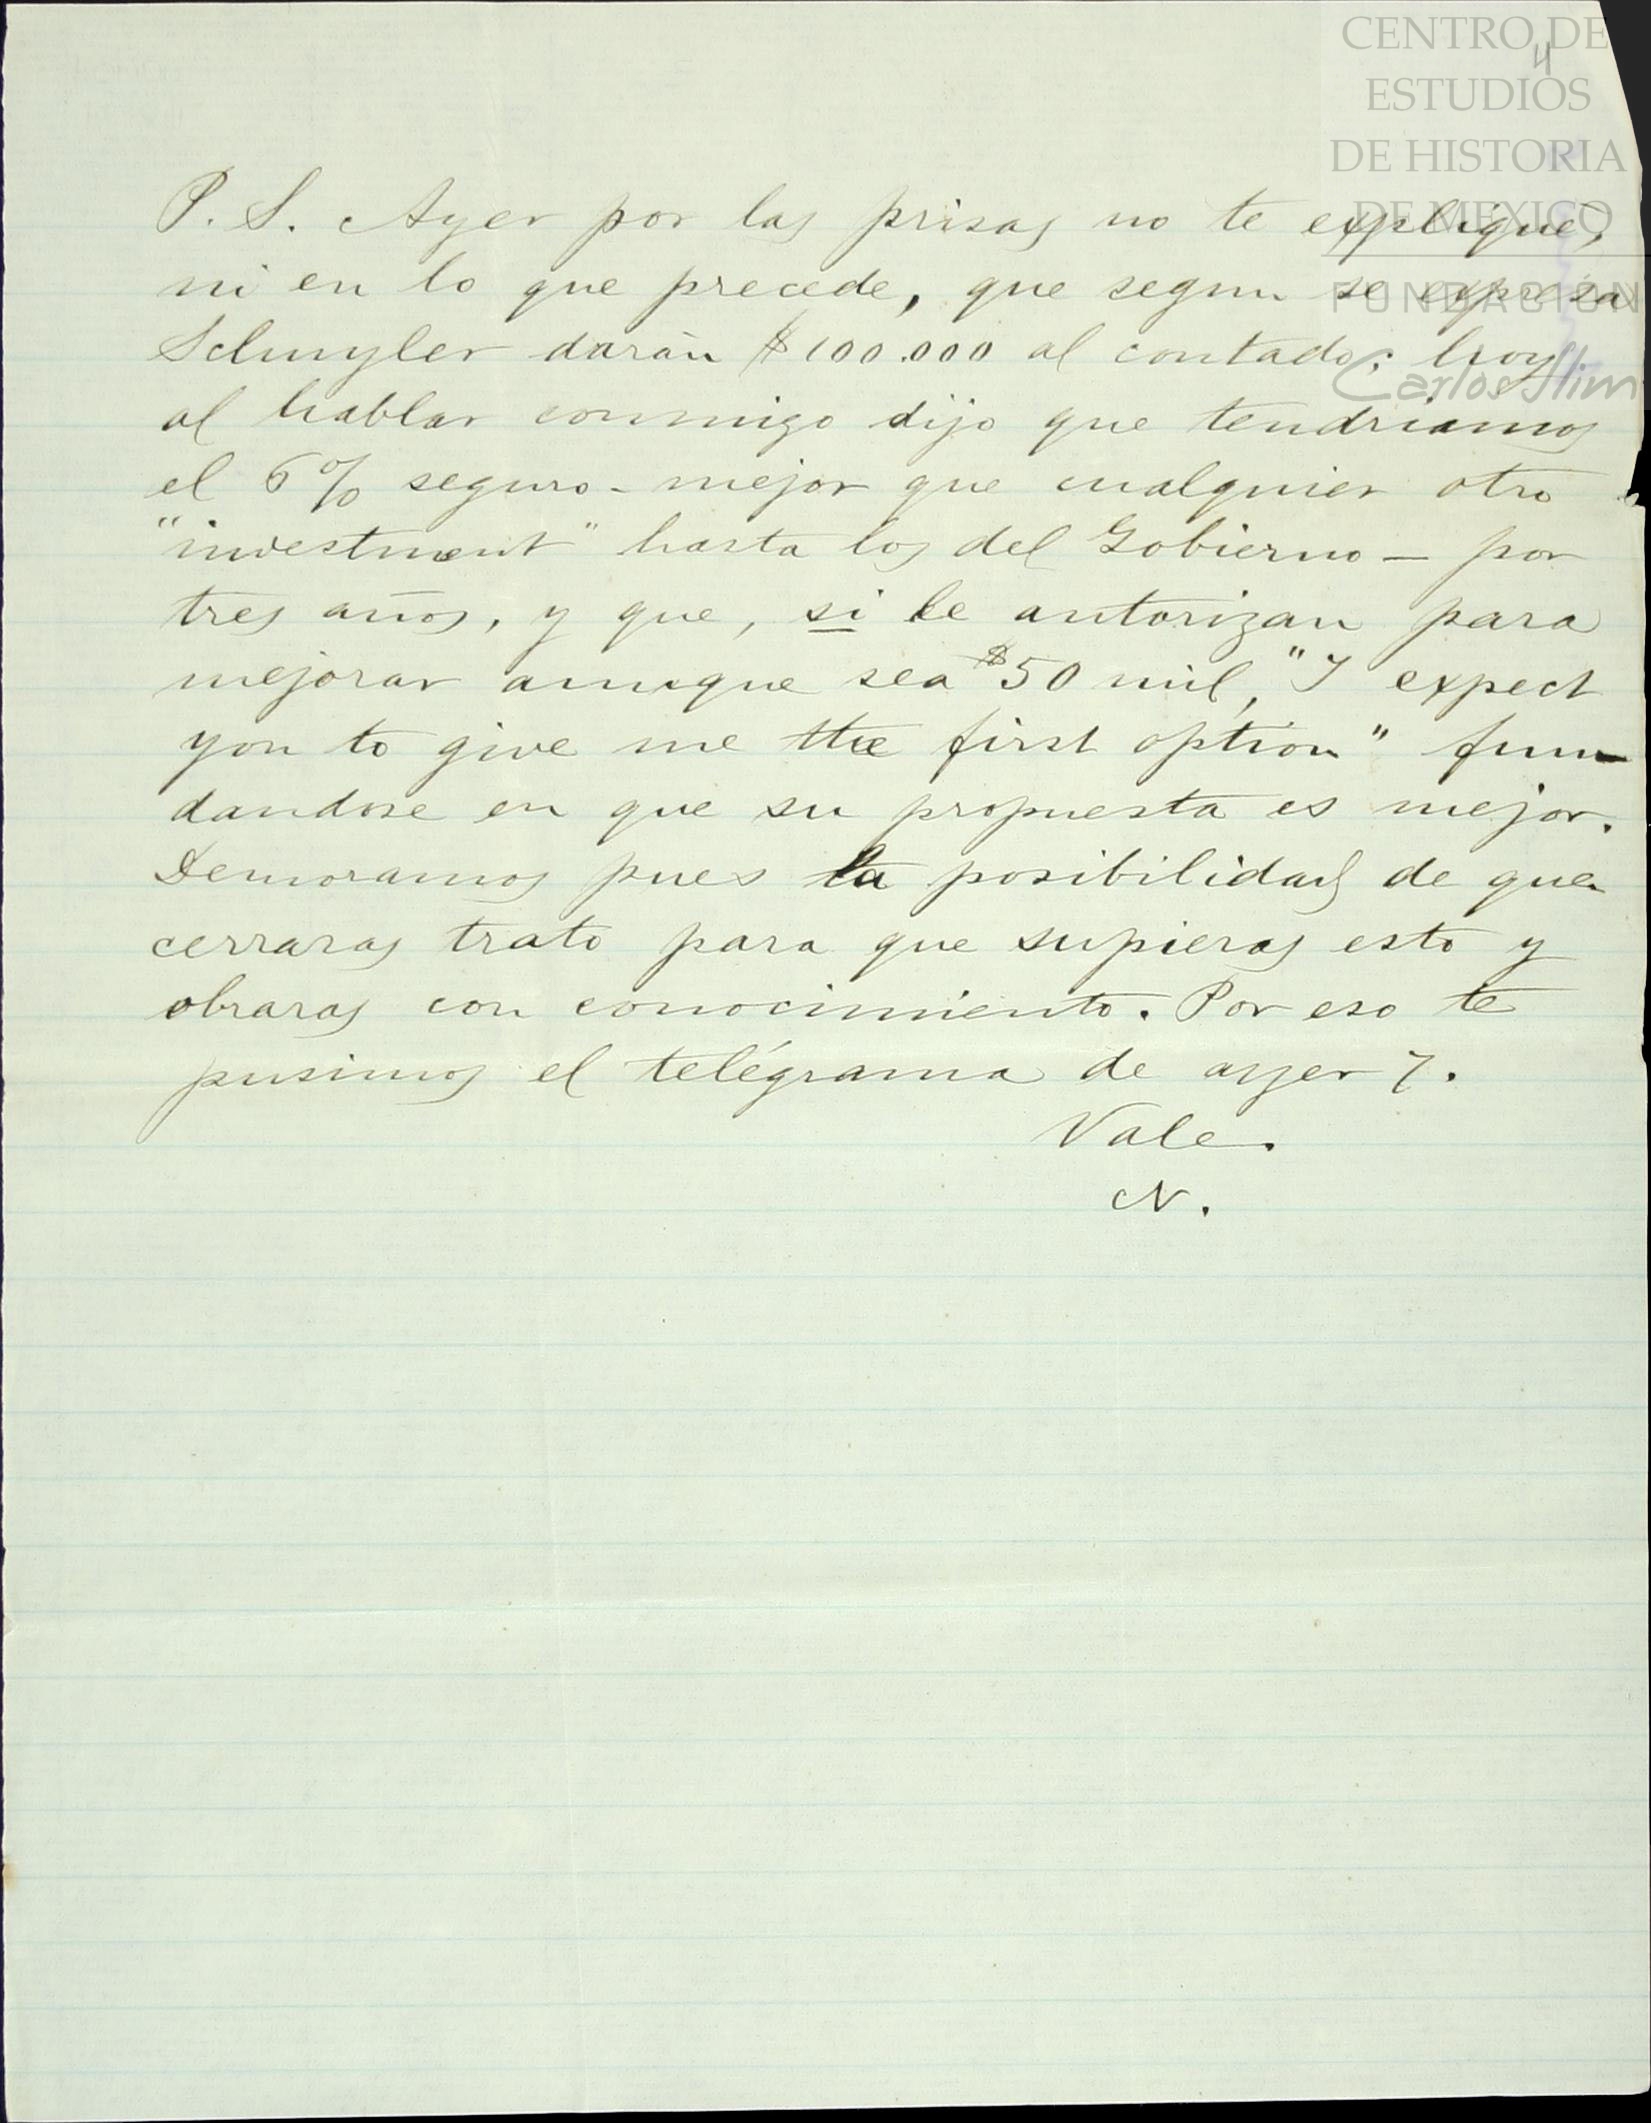 CENTRO DE
ESTUDIOS
DE HISTORIA
DE MÉXICO
FUNDACIÓN
Carlos Slim
4
P. S. Ayer por las prisas no te expliqué,
ni en lo que precede, que segun se expresa
Schuyler darán $100.000 al contado; hoy
al hablar conmigo dijo que tendriamos
el 6% seguro - mejor que cualquier otro
"investment" hasta los del Gobierno — por
tres años, y que, si le autorizan para
mejorar aunque sea $50 mil, "I expect
you to give me the first option" fun-
dandose en que su propuesta es mejor.
Demoramos pues la posibilidad de que
cerraras trato para que supieras esto y
obraras con conocimiento. Por eso te
pusimos el telégrama de ayer 7.
Vale.
N.